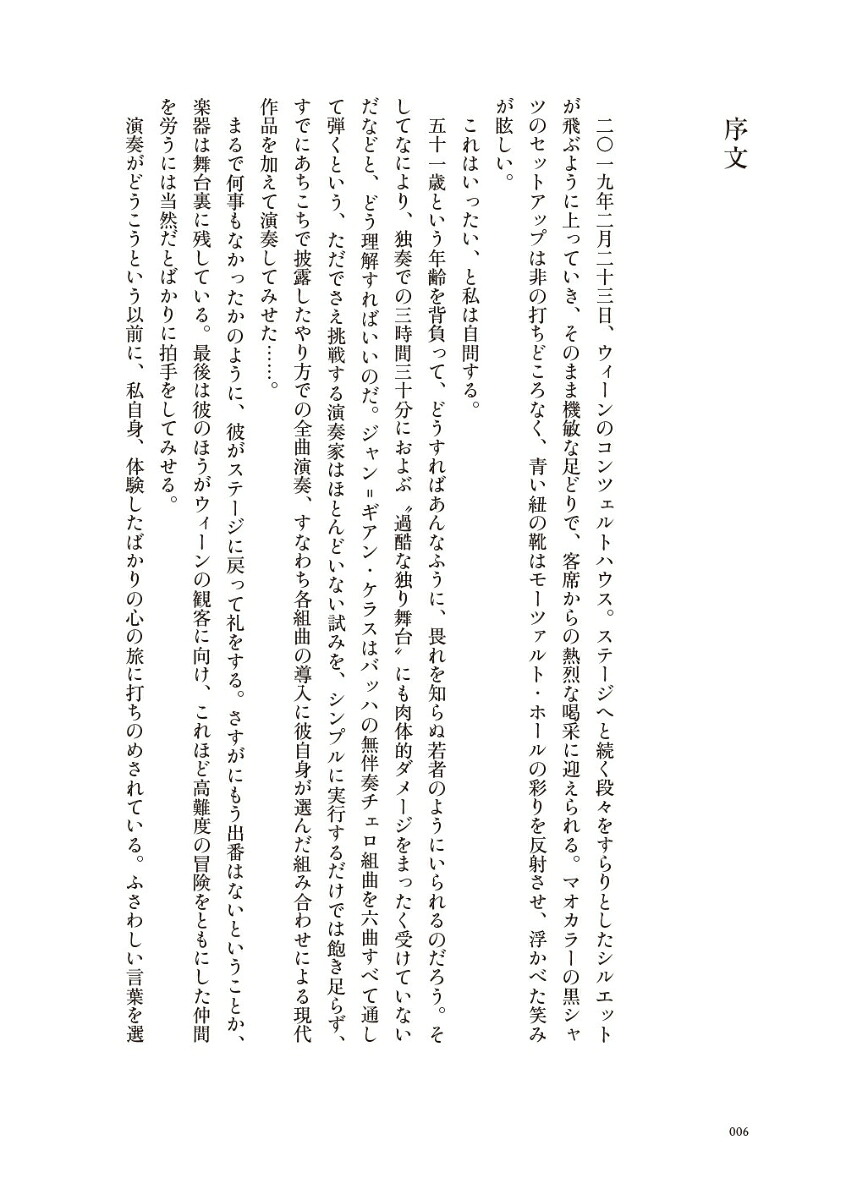 序文
二〇一九年二月二十三日、ウィーンのコンツェルトハウス。ステージへと続く段々をすらりとしたシルエット
が飛ぶように上っていき、そのまま機敏な足どりで、客席からの熱烈な喝采に迎えられる。マオカラーの黒シャ
ツのセットアップは非の打ちどころなく、青い紐の靴はモーツァルト・ホールの彩りを反射させ、浮かべた笑み
が眩しい。
これはいったい、と私は自問する。
五十一歳という年齢を背負って、どうすればあんなふうに、畏れを知らぬ若者のようにいられるのだろう。そ
してなにより、独奏での三時間三十分におよぶ〝過酷な独り舞台〟にも肉体的ダメージをまったく受けていない
だなどと、どう理解すればいいのだ。ジャン=ギアン・ケラスはバッハの無伴奏チェロ組曲を六曲すべて通し
て弾くという、ただでさえ挑戦する演奏家はほとんどいない試みを、シンプルに実行するだけでは飽き足らず、
すでにあちこちで披露したやり方での全曲演奏、すなわち各組曲の導入に彼自身が選んだ組み合わせによる現代
作品を加えて演奏してみせた……。
まるで何事もなかったかのように、彼がステージに戻って礼をする。さすがにもう出番はないということか、
楽器は舞台裏に残している。最後は彼のほうがウィーンの観客に向け、これほど高難度の冒険をともにした仲間
を労うには当然だとばかりに拍手をしてみせる。
演奏がどうこうという以前に、私自身、体験したばかりの心の旅に打ちのめされている。ふさわしい言葉を選
006